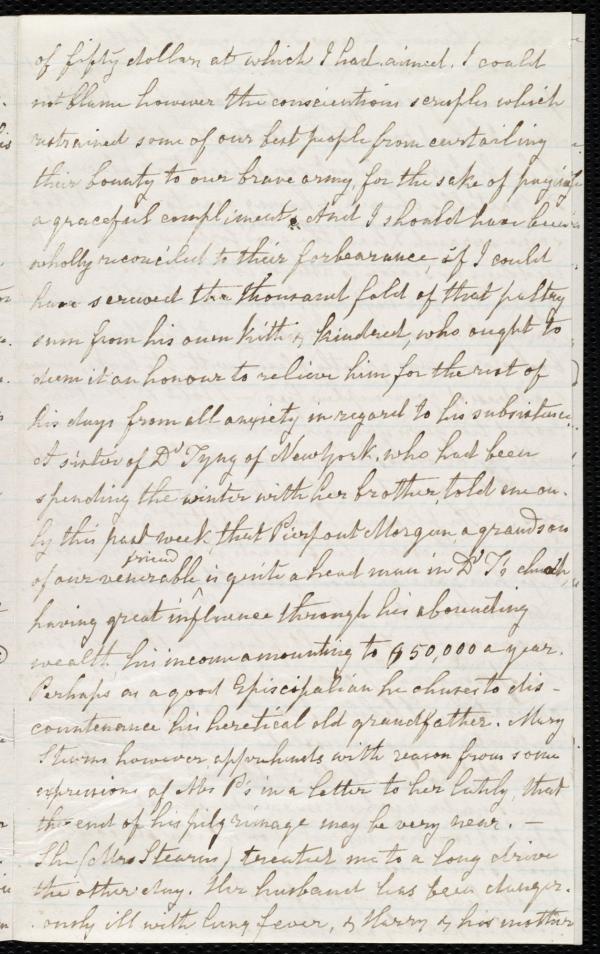 of fifty dollars at which I had aimed. I could
not blame however the conscientious scruples which
restrained some of our best people from curtailing
their bounty to our brave army, for the sake of paying
a graceful compliment. And I should have been
wholly reconciled to their forbearance, if I could
have screwed the thousand fold of that paltry
sum from his own kith & kindred, who ought to
deem it an honour to relieve him for the rest of
his days from all anxiety in regard to his subsistence.
A sister of Dr Tyng of New York, who had been
spending the winter with her brother, told me on-
ly this past week, that Pierpont Morgan, a grandson
friend
of our venerable ^ is quite a head man in Dr T's church,
having great influence through his abounding
wealth, his income amounting to $50,000 a year.
Perhaps as a good Episcopalian he chuses to dis-
countenance his heretical old grandfather. Mary
Stearns however, apprehends with reason from some
expressions of Mrs P's in a letter to her lately, that
the end of his pilgrimage may be very near. —
She (Mrs Stearns) treated me to a long drive
the other day. Her husband has been danger-
ously ill with lung fever, & Harry & his mother